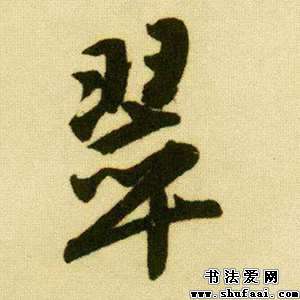 翠
书法爱网
www.shufaai.com